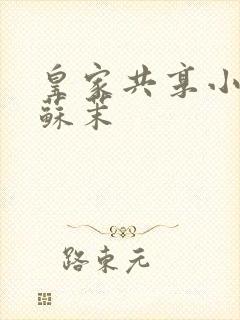 皇家共享小
蘇茉
路東元